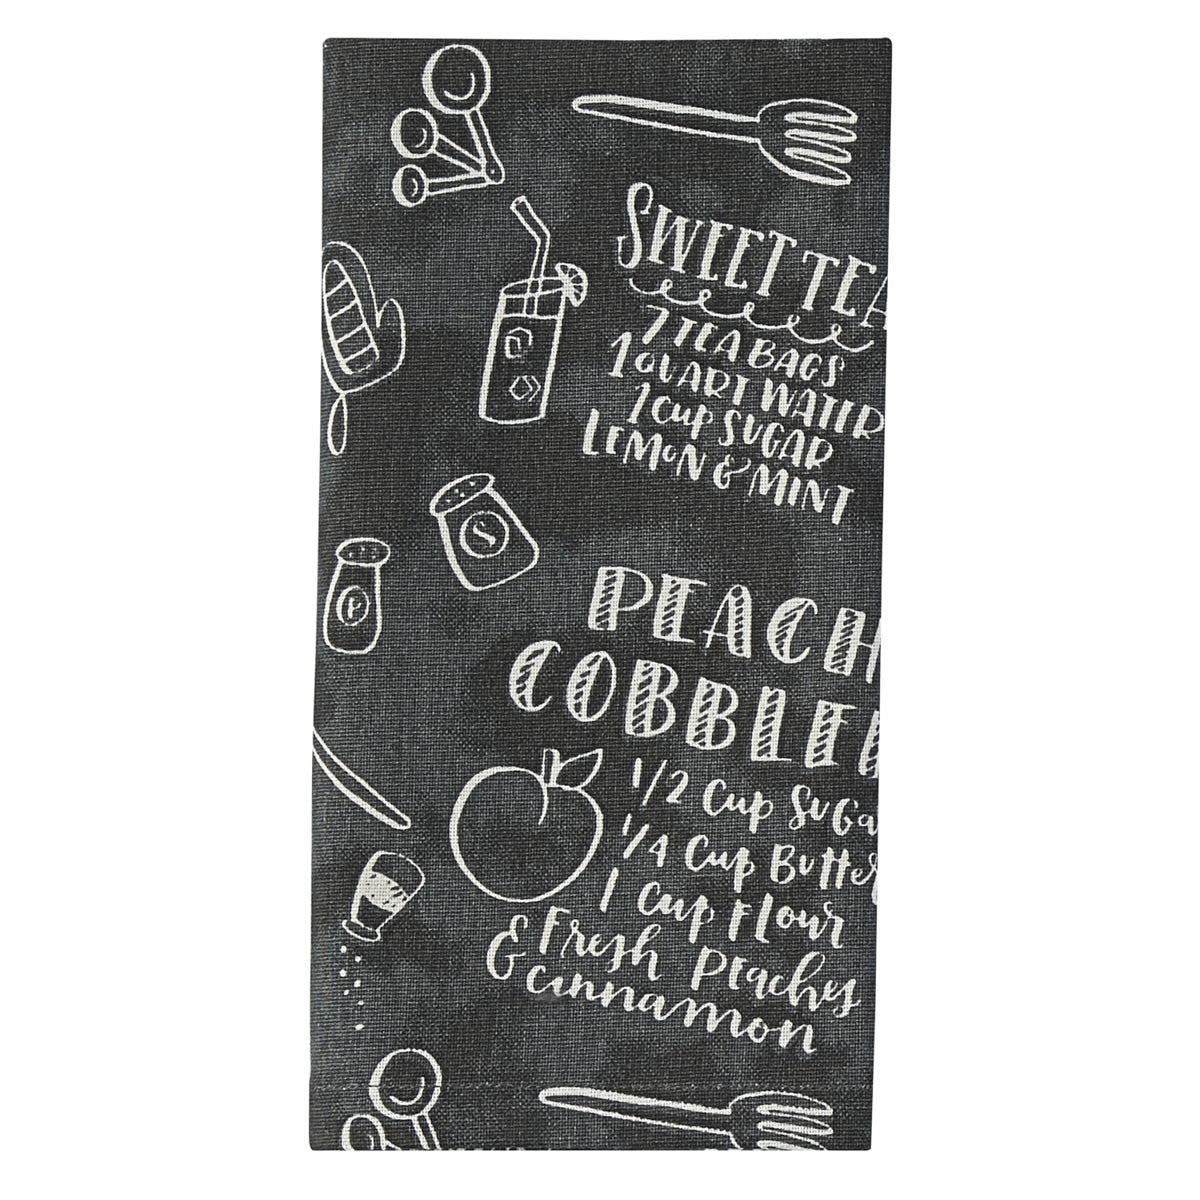 SWEET TEA
7 TEA BAGS
1 QUART WATER
1 CUP SUGAR
LEMON & MINT
S
P
PEACH
COBBLER
1/2 Cup Suga
1/4 Cup Butte
1 Cup Flour
& Fresh Peaches
Cinnamon